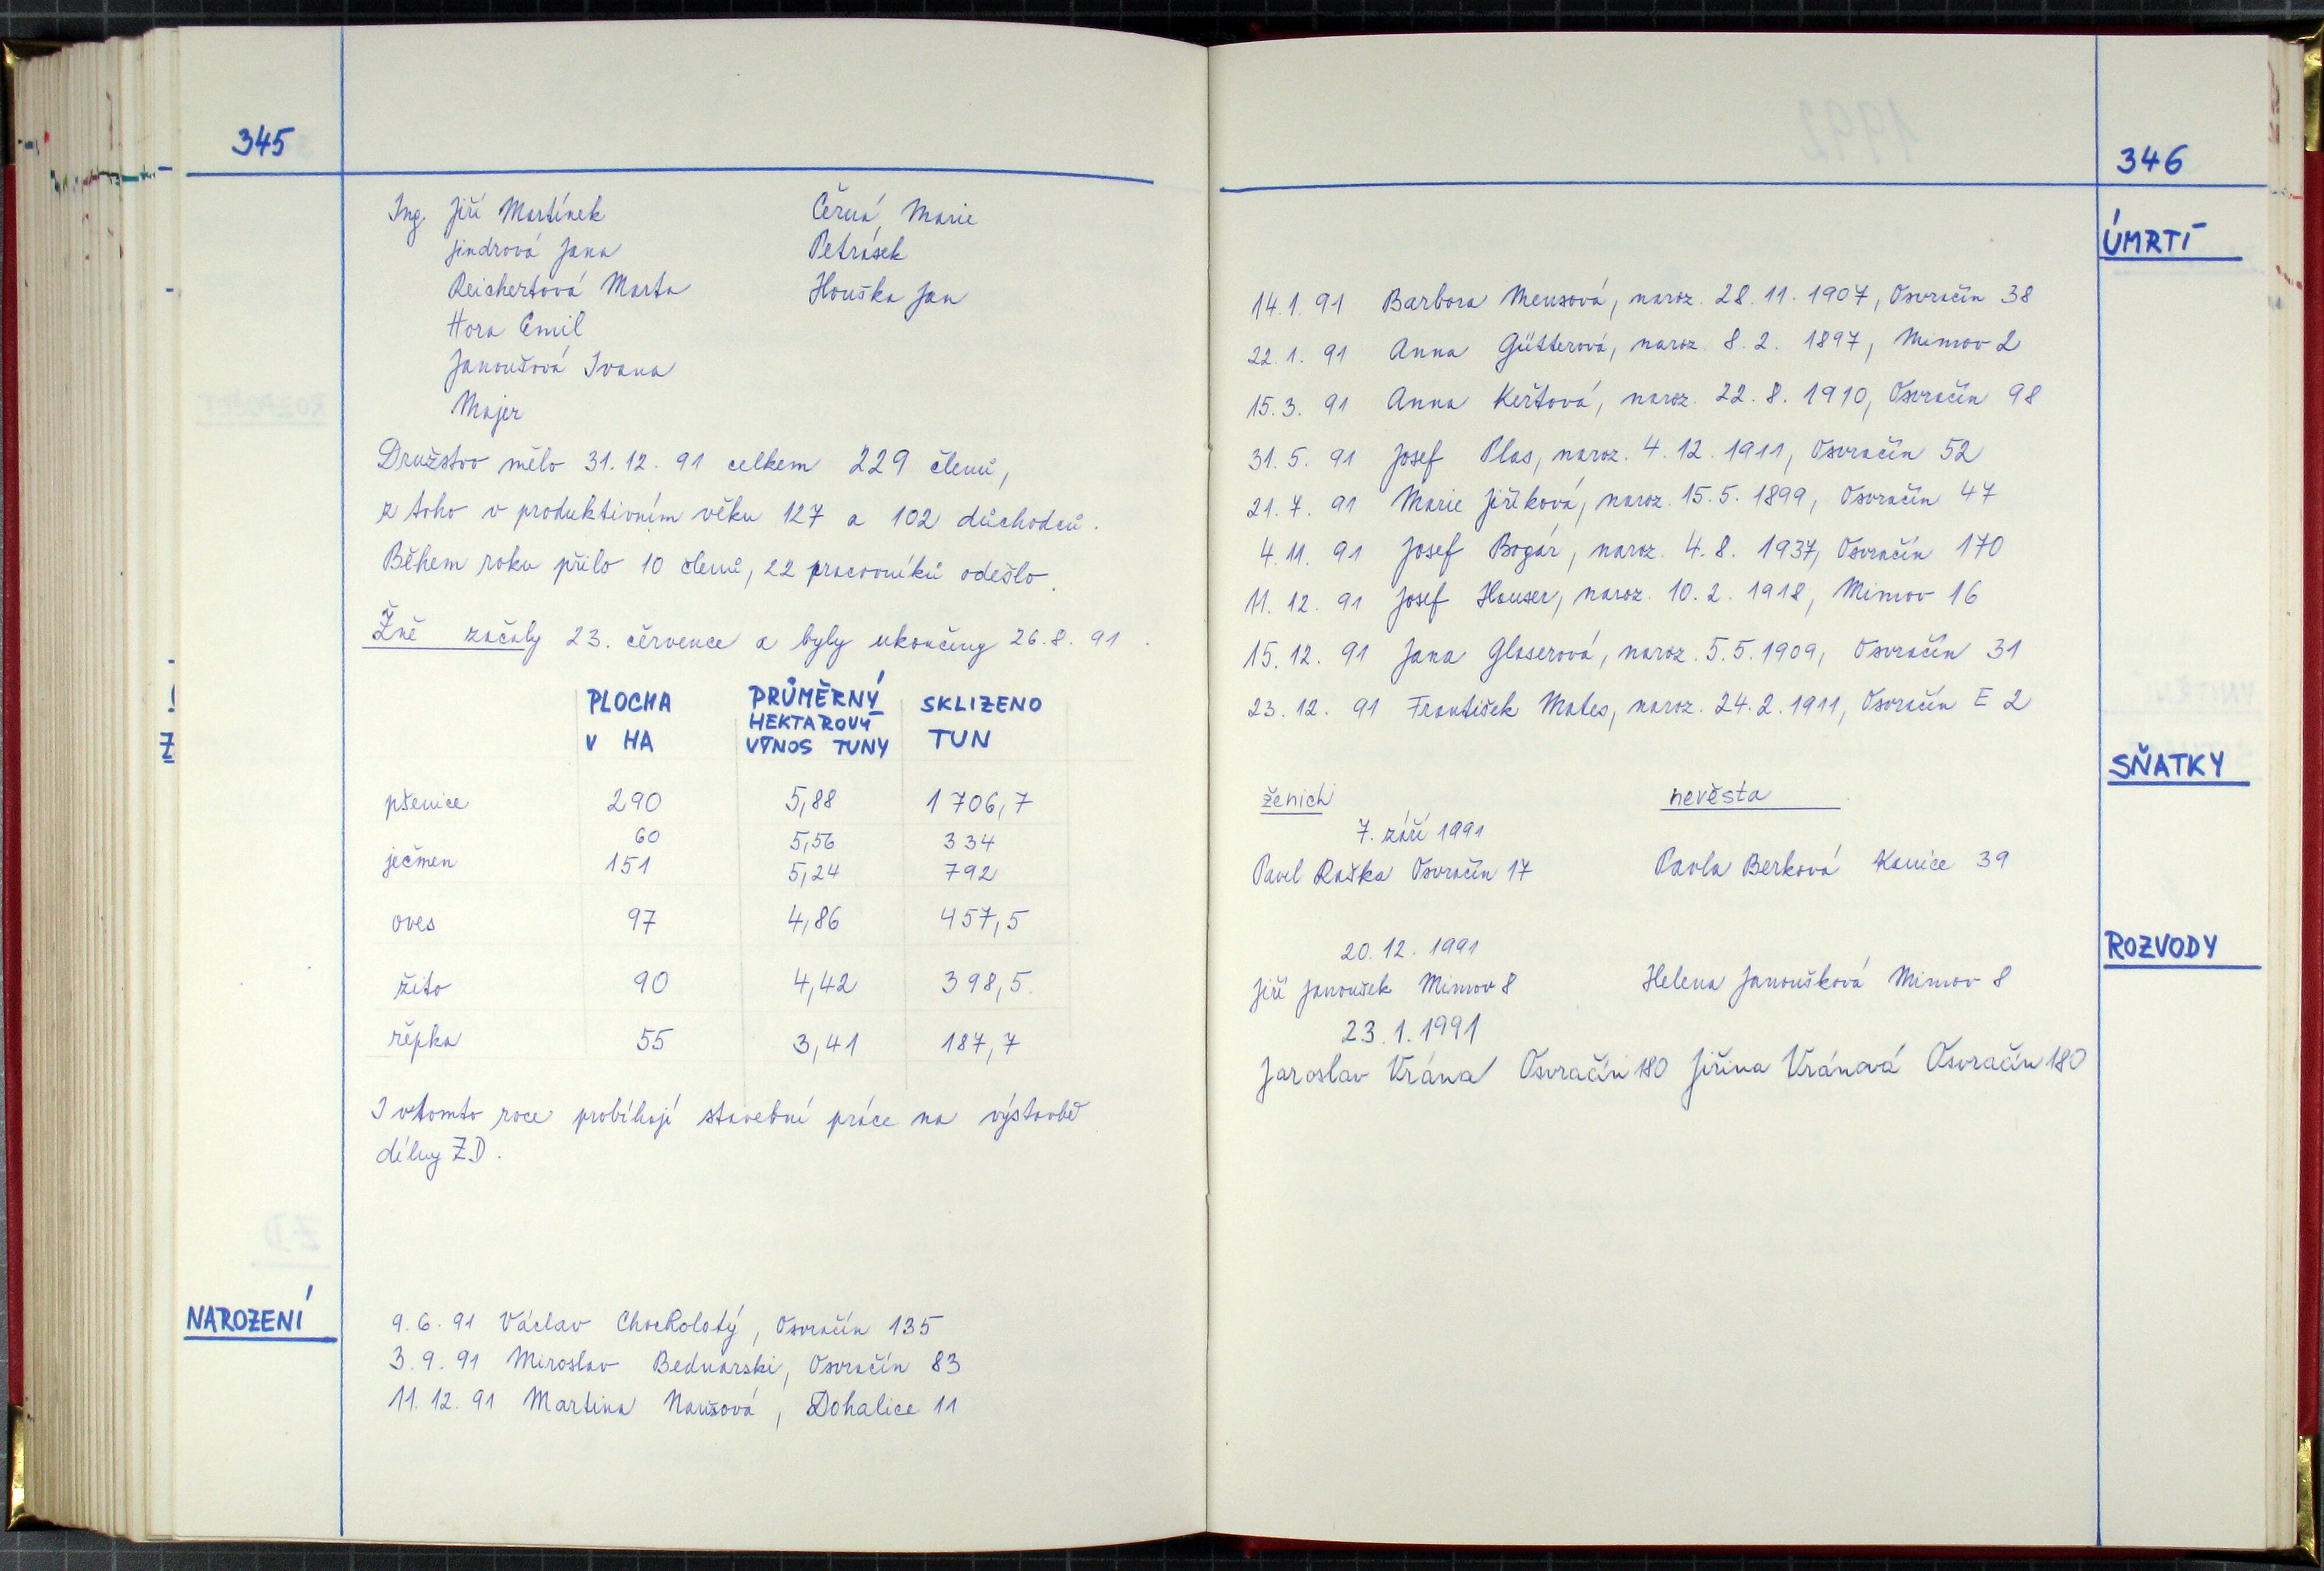 345
Ing. Jiří Martínek Černá Marie
Jindrová Jana Petrásek
Reichertová Marta Houška Jan
Hora Emil
Janoušová Ivana
Majer
Družstvo mělo 31.12.91 celkem 229 členů,
z toho v produktivním věku 127 a 102 důchodců.
Během roku přilo 10 členů, 22 pracovníků odešlo.
Žně začaly 23. července a byly ukončeny 26.8.91.
PLOCHA PRŮMĚRNÝ SKLIZENO
HEKTAROVÝ
V HA VÝNOS TUNY TUN
pšenice 290 5,88 1 706,7
60 5,56 334
ječmen 151 5,24 792
oves 97 4,86 457,5
žito 90 4,42 398,5
řepka 55 3,41 187,7
I v tomto roce probíhají stavební práce na výstavbě
dílny ZD.
NAROZENÍ
9.6.91 Václav Chocholatý, Osvračín 135
3.9.91 Miroslav Bednarski, Osvračín 83
11.12.91 Martina Nausová, Dohalice 11
346
ÚMRTÍ
14.1.91 Barbora Mensová, naroz. 28.11.1907, Osvračín 38
22.1.91 Anna Gütterová, naroz. 8.2.1897, Mimov 2
15.3.91 Anna Keřtová, naroz. 22.8.1910, Osvračín 98
31.5.91 Josef Plas, naroz. 4.12.1911, Osvračín 52
21.7.91 Marie Jiříková, naroz. 15.5.1899, Osvračín 47
4.11.91 Josef Bogár, naroz. 4.8.1937, Osvračín 170
11.12.91 Josef Houser, naroz. 10.2.1918, Mimov 16
15.12.91 Jana Glaserová, naroz. 5.5.1909, Osvračín 31
23.12.91 František Mates, naroz. 24.2.1911, Osvračín E 2
SŇATKY
ženich nevěsta
7. září 1991
Pavel Raška Osvračín 17 Pavla Berková Kanice 39
ROZVODY
20.12.1991
Jiří Janoušek Mimov 8 Helena Janoušková Mimov 8
23.1.1991
Jaroslav Vrána Osvračín 180 Jiřina Vránová Osvračín 180